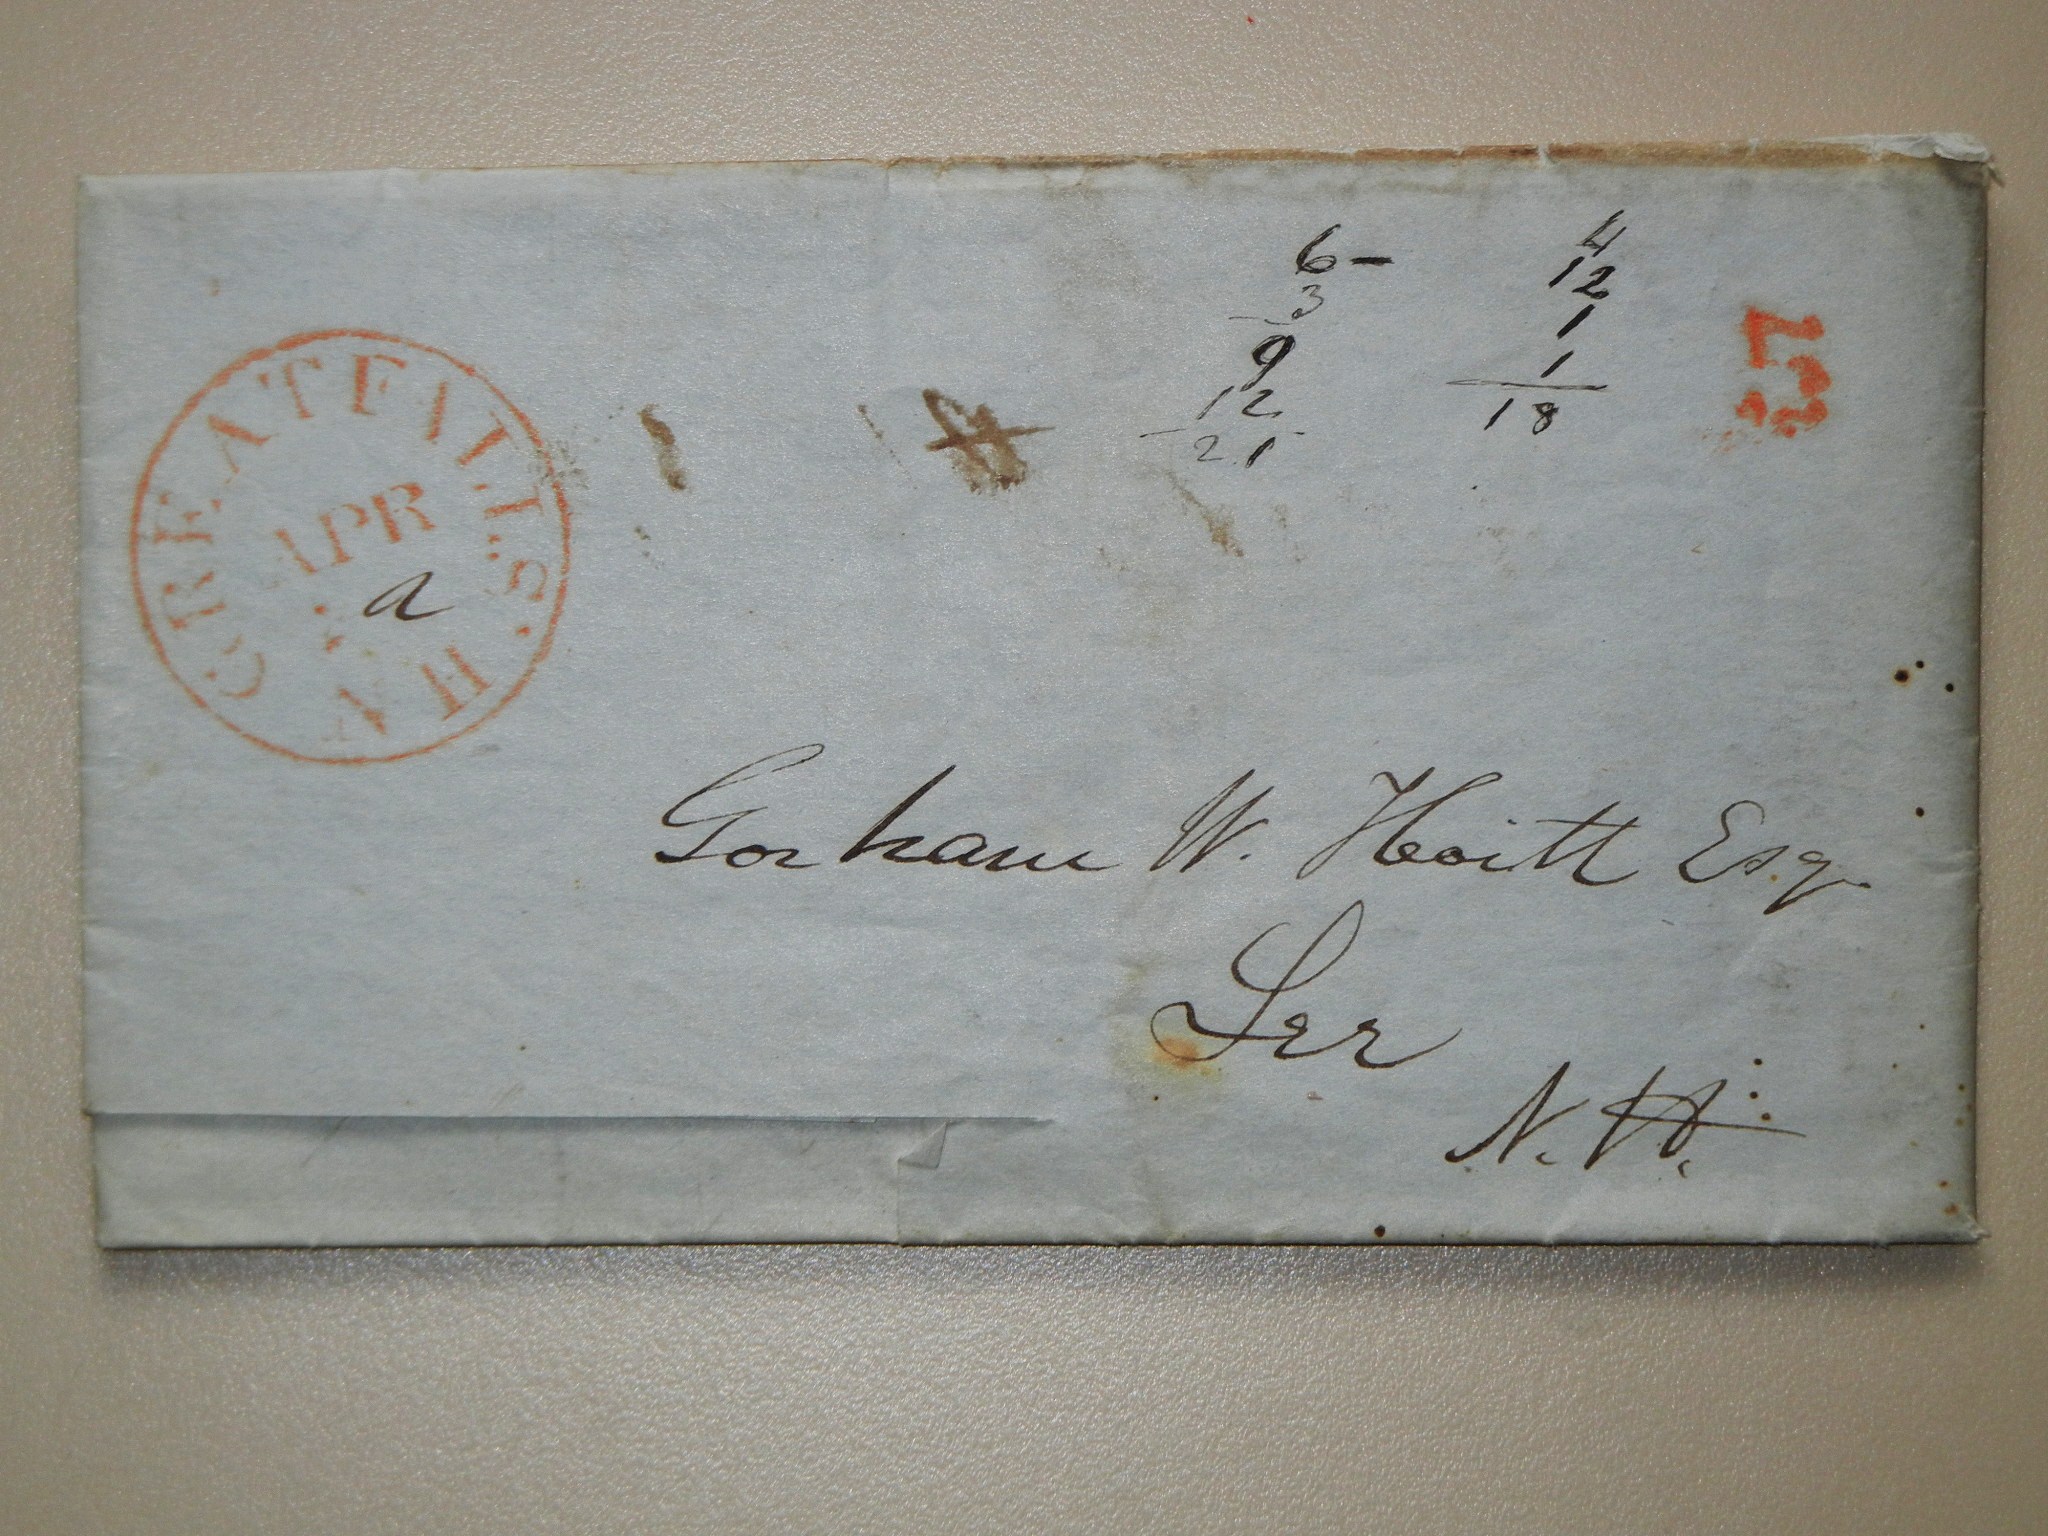 GREAT FALLS.
N H
APR
a
6-
3
9
12
21
4
12
1
1
18
5
Gorham W. Hoitt Esq.
Lee
N. H.